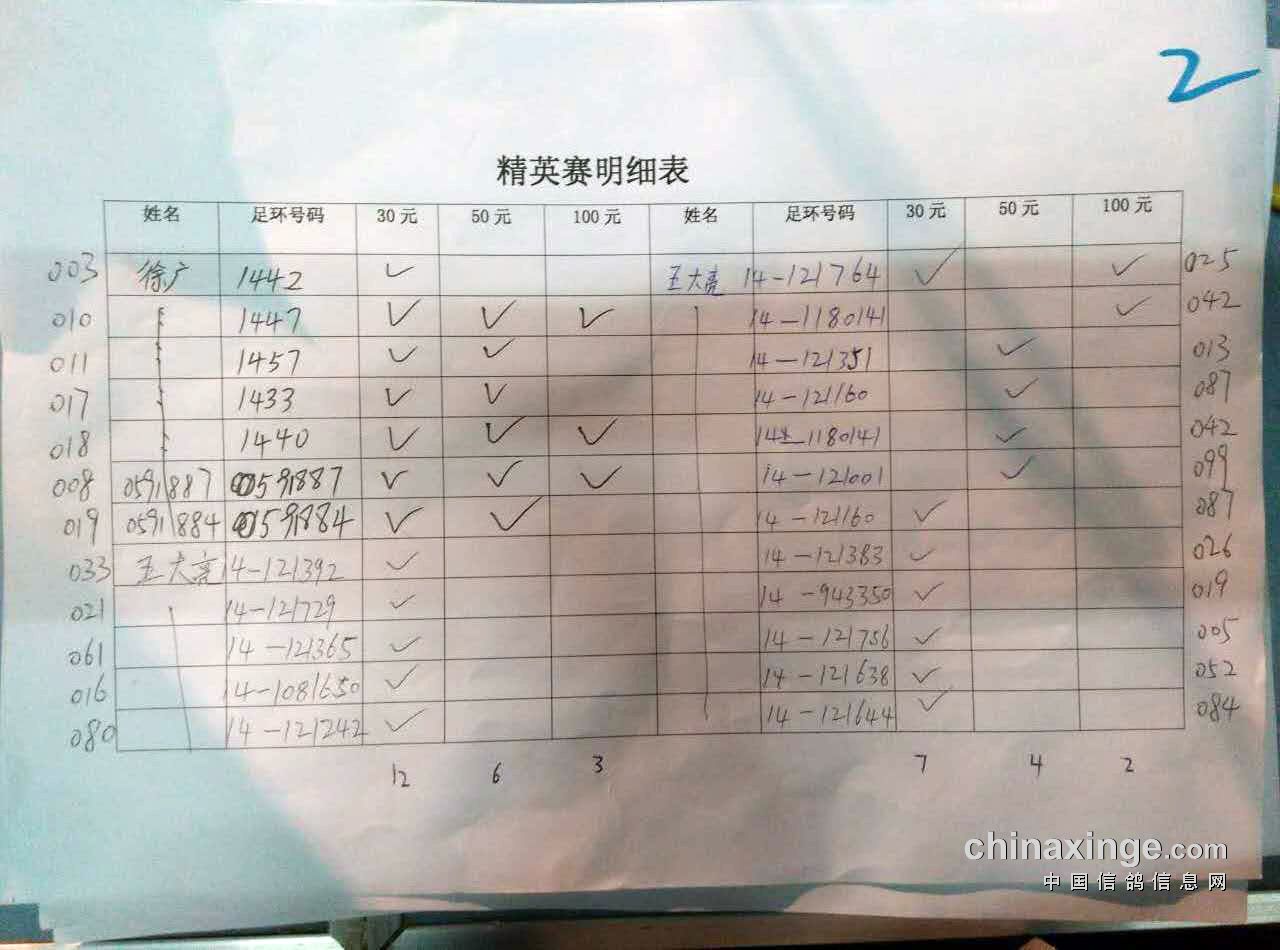 2
精英赛明细表
姓名 足环号码 30元 50元 100元 姓名 足环号码 30元 50元 100元
003 徐广 1442 ✓ 王大亮 14-121764 ✓ ✓ 025
010 1447 ✓ ✓ ✓ 14-1180141 ✓ 042
011 1457 ✓ ✓ 14-121351 ✓ 013
017 1433 ✓ ✓ 14-121160 ✓ 087
018 1440 ✓ ✓ ✓ 14-1180141 ✓ 042
008 0591887 0591887 ✓ ✓ ✓ 14-121001 ✓ 099
019 0591884 0591884 ✓ ✓ 14-121160 ✓ 087
033 王大亮 14-121392 ✓ 14-121383 ✓ 026
021 14-121729 ✓ 14-943350 ✓ 019
061 14-121365 ✓ 14-121756 ✓ 005
016 14-1081650 ✓ 14-121638 ✓ 052
080 14-121242 ✓ 14-121644 ✓ 084
12 6 3 7 4 2
chinaxinge.com
中国信鸽信息网